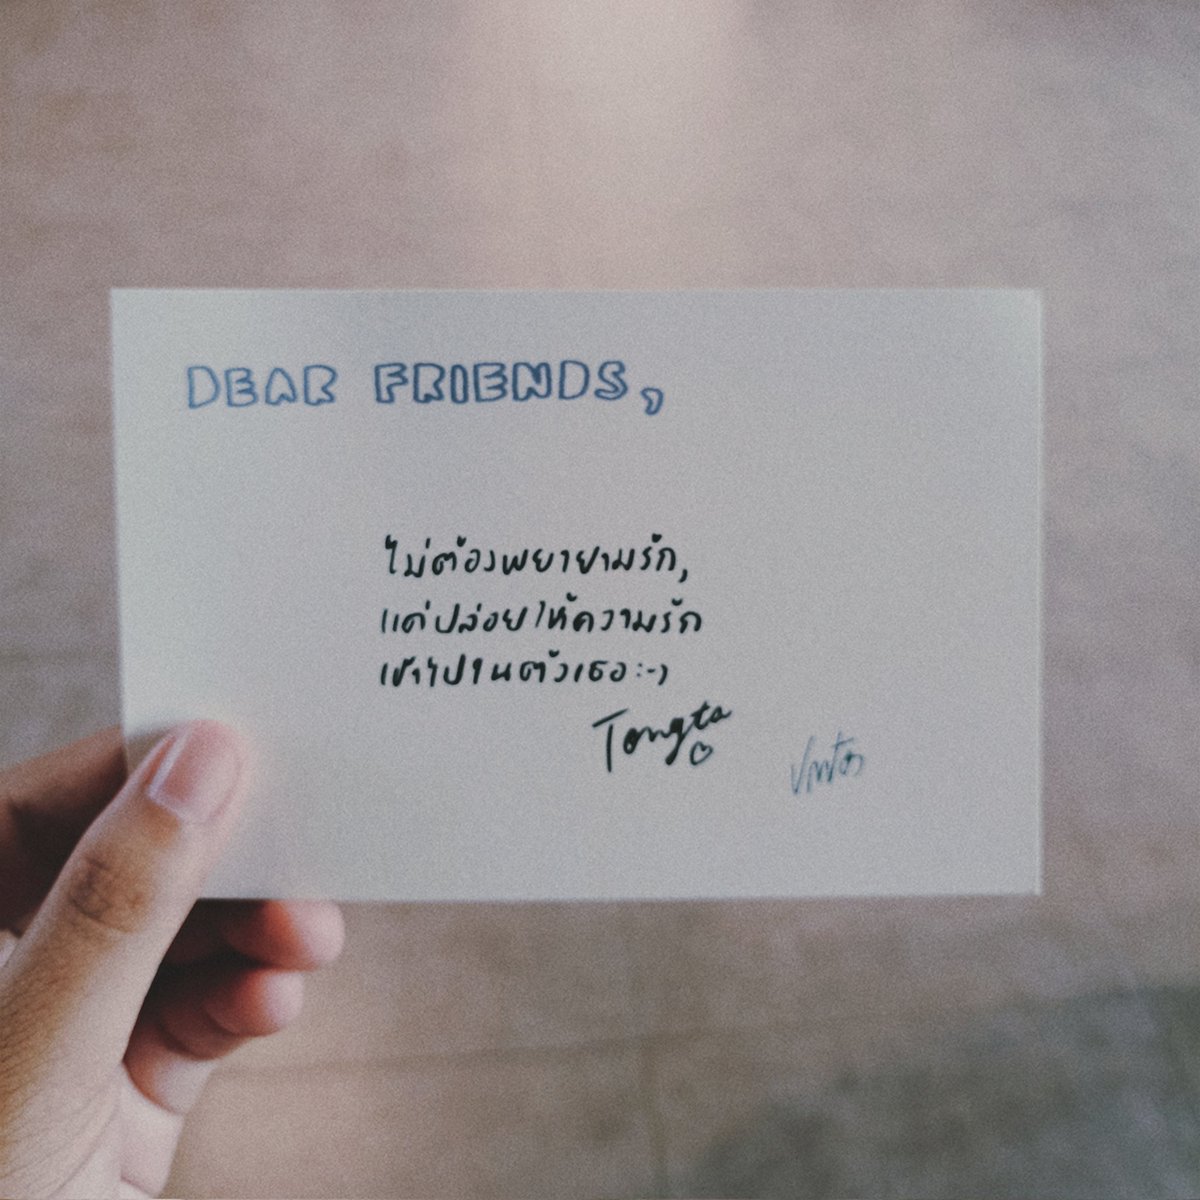 DEAR FRIENDS,
ไม่ต้องพยายามรัก,
แค่ปล่อยให้ความรัก
เข้าไปในตัวเธอ :-)
Tongta ♡